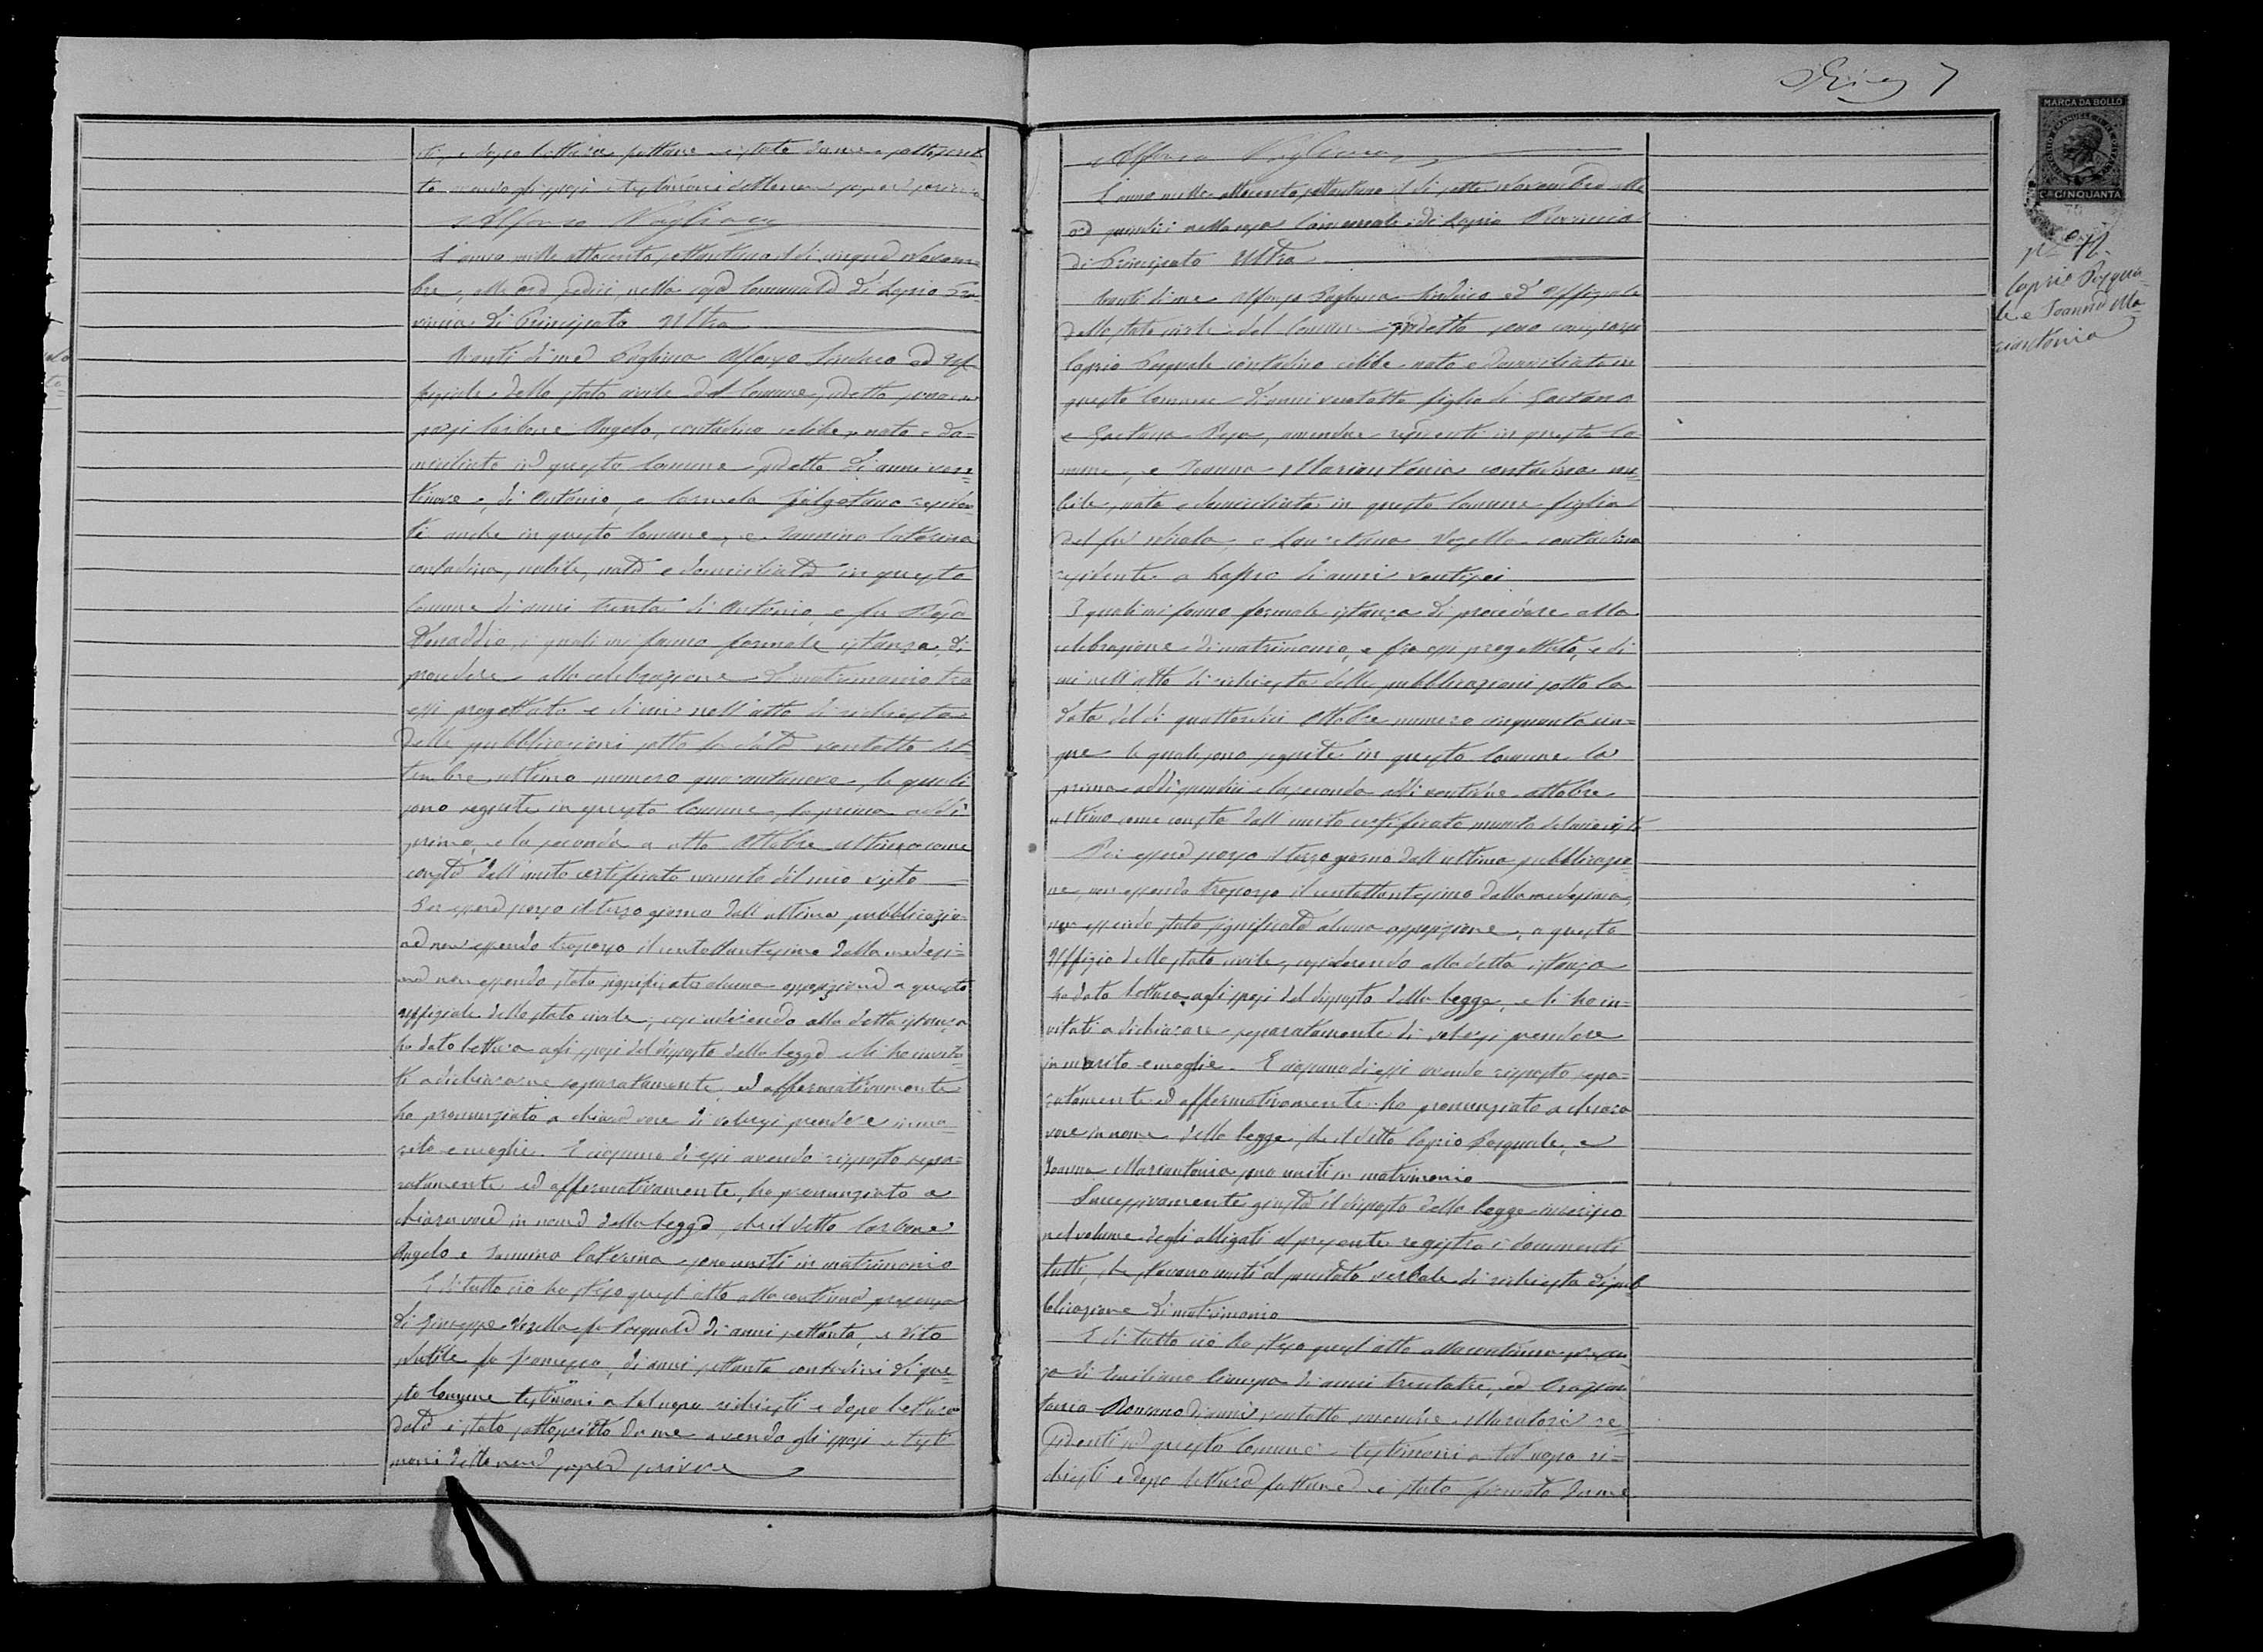 sti, e dopo lettura fattane è stato da me sottoscrit
to avendo gli sposi e testimoni detto non sapere scrivere
Alfonso Pagliuca
L'anno mille ottocento settantuno il dì cinque Novem=
bre, alle ore sedici, nella casa Comunale di Lapio Pro=
vincia di Principato Ultra
Avanti di me Pagliuca Alfonso Sindaco ed Uf=
fiziale dello stato civile del Comune sudetto sono com
parsi Carbone Angelo, contadino celibe, nato e do=
miciliato in questo Comune sudetto di anni vent
tinove, di Antonio, e Carmela residen=
ti anche in questo Comune, e Iannino Caterina
contadina, nubile, nata e domiciliata in questo
Comune di anni trenta di Antonio, e fu Rosa
i quali mi fanno formale istanza, di
procedere alla celebrazione di matrimonio tra
essi progettato e di cui nell'atto di richiesta
delle pubblicazioni sotto la data ventotto Set=
tembre ultimo numero quarantanove, le quali
sono seguite in questo Comune, la prima addì
primo, e la seconda a otto Ottobre ultimo come
consta dall'unito certificato munito del mio visto
Per essere scorso il terzo giorno dall'ultima pubblicazio=
ne non essendo trascorso il centottantesimo dalla medesi=
ma non essendo stata significata alcuna opposizione a questo
uffiziale dello stato civile, condiscendo alla detta istanza
ho dato lettura agli sposi del disposto della legge e li ho invita
ti a dichiarare separatamente, ed affermativamente
ho pronunziato a chiara voce di volersi prendere in ma=
rito e moglie. E ciascuno di essi avendo risposto sepa=
ratamente ed affermativamente, ho pronunziato a
chiara voce in nome della legge, che il detto Carbone
Angelo e Iannino Caterina sono uniti in matrimonio
E di tutto ciò ho steso quest'atto alla continua presenza
di Giuseppe Vozella fu Pasquale di anni settanta, e Vito
fu Francesco, di anni settanta contadini di que=
sto Comune testimoni a tal uopo richiesti e dopo lettura
data è stato sottoscritto da me avendo gli sposi e testi
moni detto non sapere scrivere
7
Alfonso Pagliuca
L'anno mille ottocento settantuno il dì sette Novembre alle
ore quindici nella casa Comunale di Lapio Provincia
di Principato Ultra
Avanti di me Alfonso Pagliuca Sindaco ed Uffiziale
dello stato civile del Comune sudetto sono comparsi
Caprio Pasquale contadino celibe nato e domiciliato in
questo Comune di anni ventotto figlio di Gaetano
e Gaetana Pepe, amendue residenti in questo Co
mune, e Ioanna Mariantonia contadina nu=
bile, nata e domiciliata in questo Comune figlia
del fu Nicola, e Vozella contadina
residente a Lapio di anni ventisei
I quali mi fanno formale istanza di procedere alla
celebrazione di matrimonio, e fra essi progettato, e di
cui nell'atto di richiesta delle pubblicazioni sotto la
data del dì quattordici Ottobre numero cinquanta cin=
que le quali sono seguite in questo Comune la
prima addì quindici e la seconda addì ventidue ottobre
ultimo come consta dall'unito certificato munito del mio visto
Per essere scorso il terzo giorno dall'ultima pubblicazio
ne, non essendo trascorso il centottantesimo dalla medesima,
non essendo stata significata alcuna opposizione, a questo
Uffizio dello stato civile, condiscendo alla detta istanza
ho dato lettura agli sposi del disposto della legge, e li ho in=
vitati a dichiarare separatamente di volersi prendere
in marito e moglie. E ciascuno di essi avendo risposto sepa=
ratamente ed affermativamente ho pronunziato a chiara
voce in nome della legge, che il detto Caprio Pasquale, e
Ioanna Mariantonia sono uniti in matrimonio
Successivamente giusta il disposto della legge inserisco
nel volume degli alligati al presente registro i documenti
tutti, che stavano uniti al precitato verbale di richiesta di pub
blicazione di matrimonio
E di tutto ciò ho steso quest'atto alla continua presen=
za di Emiliano Ciampa di anni trentatre, ed Orazian
tonio Romano di anni ventotto amendue Muratori re=
sidenti in questo Comune testimoni a tal uopo ri=
chiesti e dopo lettura fattane è stato firmato da me
MARCA DA BOLLO
VITTORIO EMANUELE II RE D'ITALIA
CMI CINQUANTA
Caprio Pasqua=
le e Ioanna Ma=
riantonia